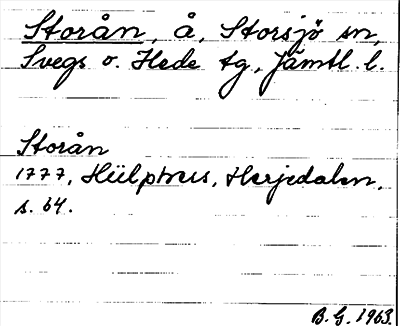 Storån, å, Storsjö sn,
Svegs o. Hede tg., Jämtl. l.
Storån
1777, Hülphers, Herjedalen,
s. 64.
B. G. 1963.